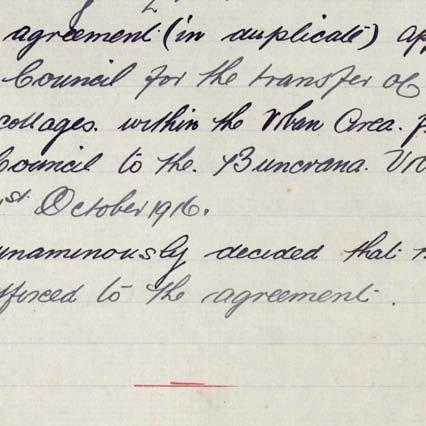 agreement (in duplicate)
Council for the transfer of
cottages. within the Urban Area.
Council to the. Buncrana.
1st October 1916.
unaminously decided that
to the agreement.